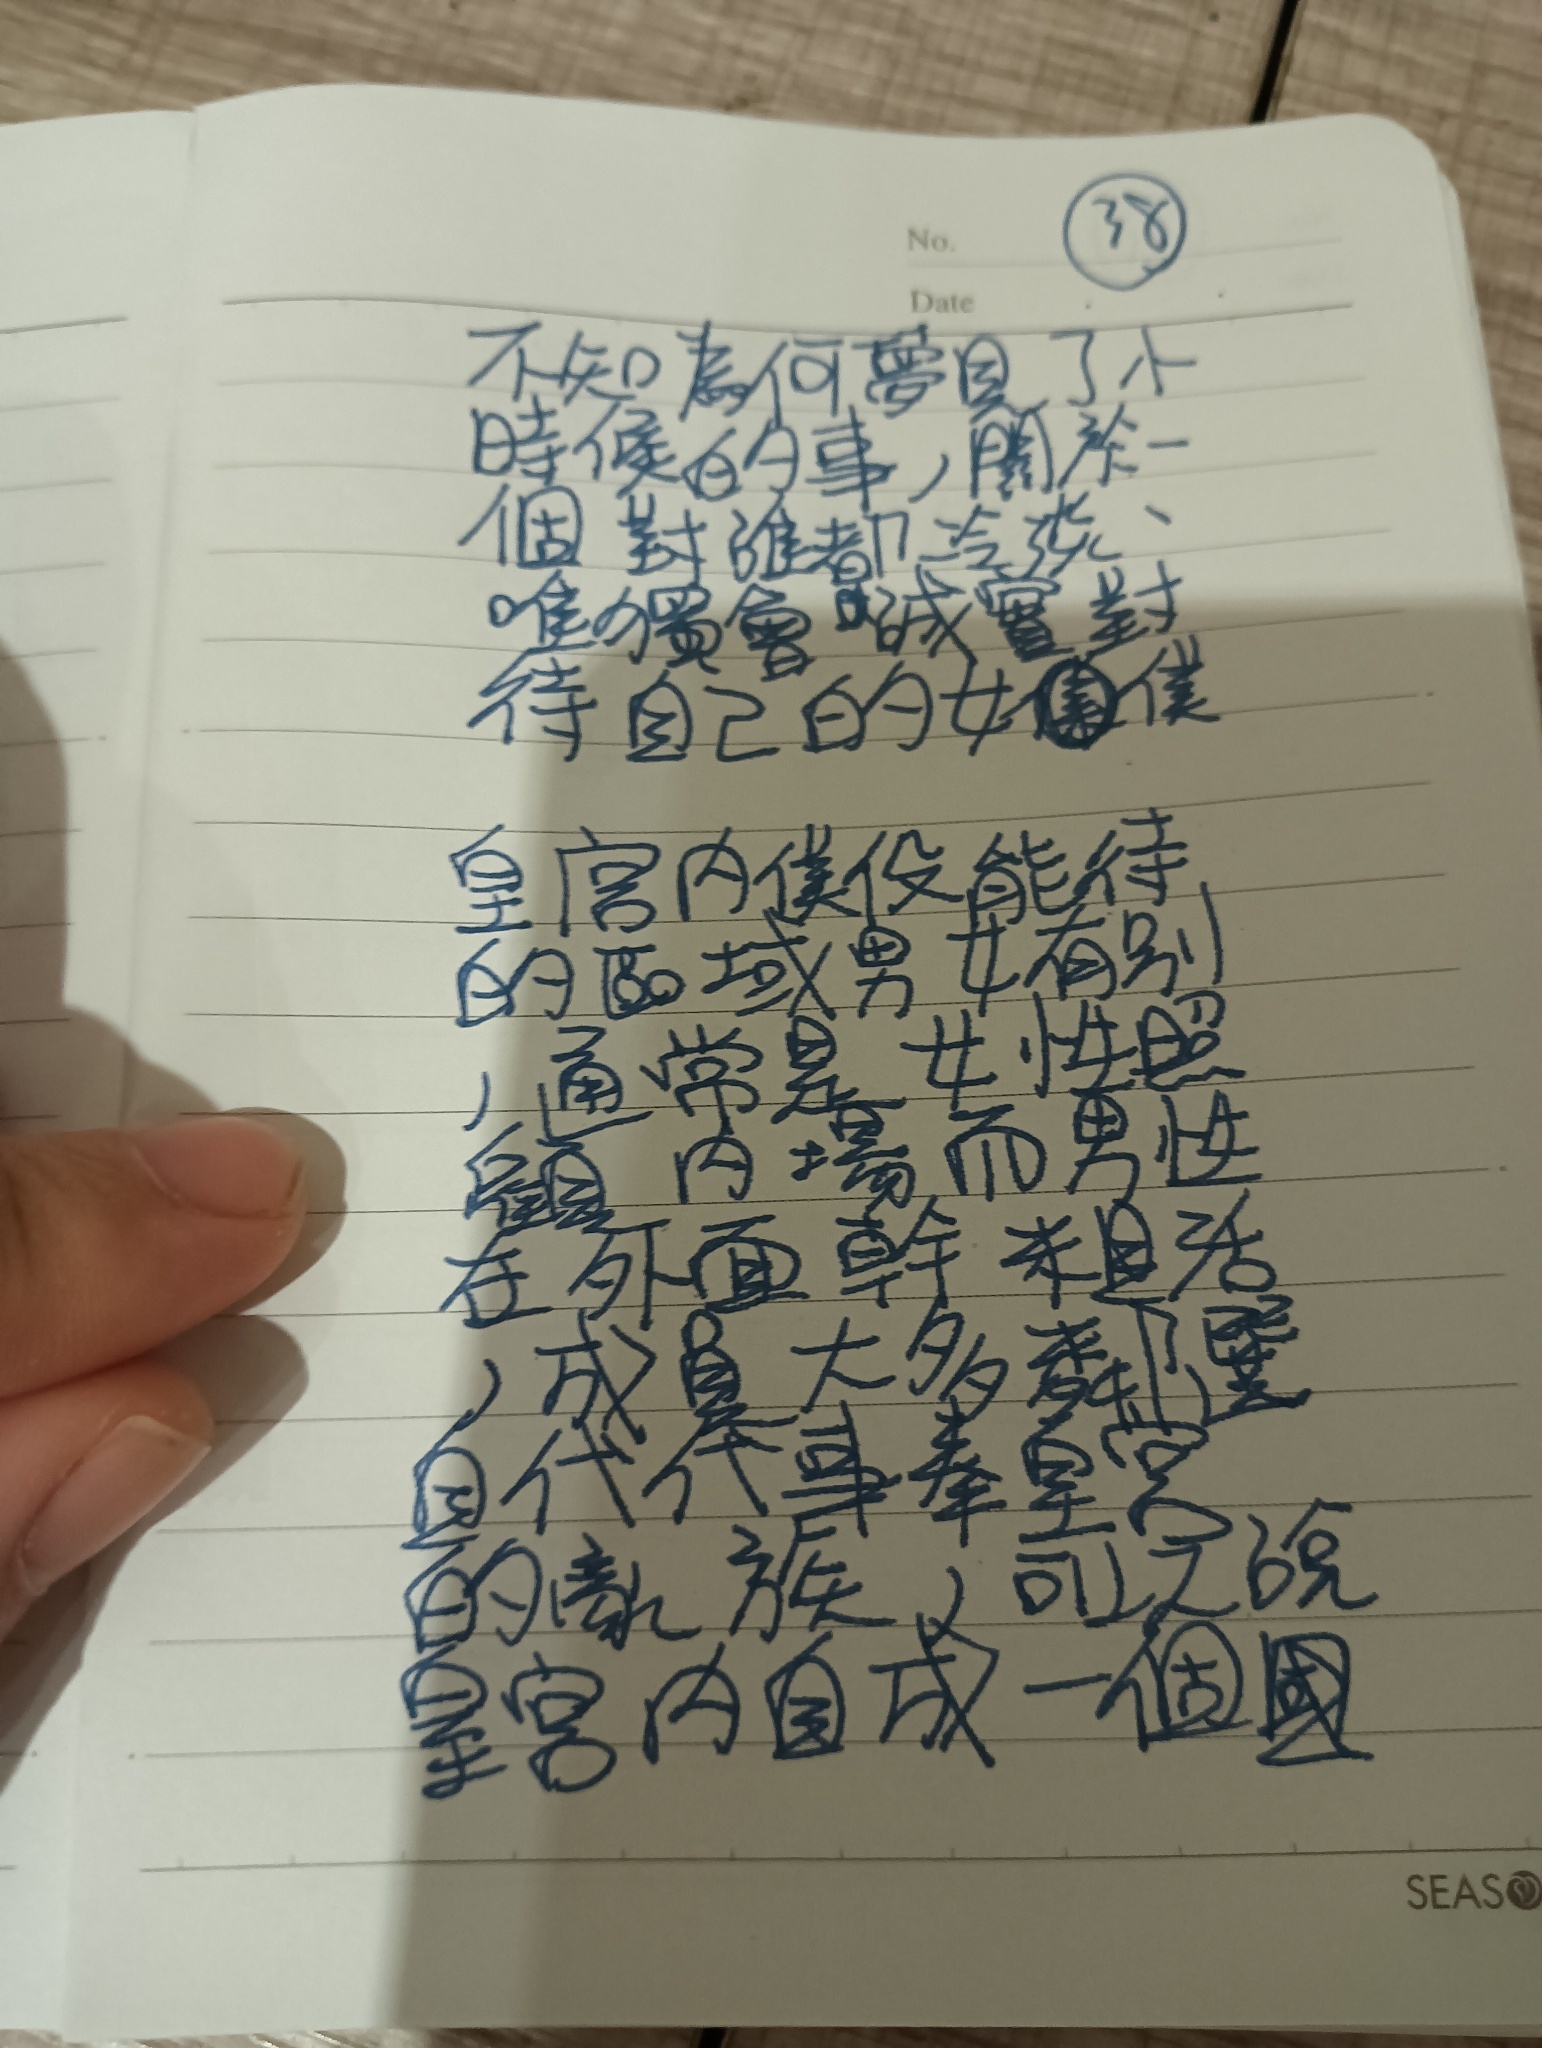 No. 38
Date
不知為何夢見了小
時候的事,關於一
個對誰都冷淡、
唯獨會誠實對
待自己的女僕
皇宮內僕役能待
的區域男女有別
,通常是女性照
顧內場而男性
在外面幹粗活
,成員大多數了選
自代代事奉皇宮
的氏族,可以說
皇宮內自成一個國
SEAS